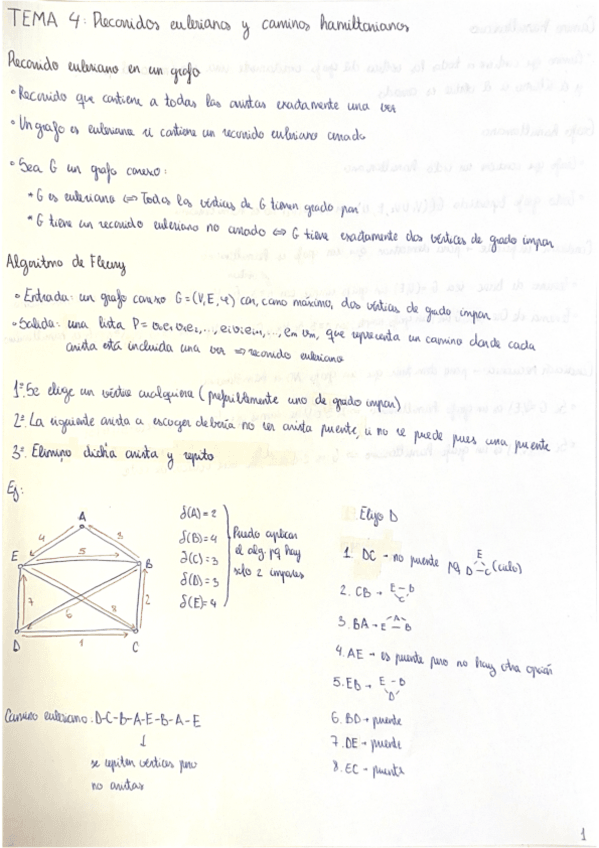 TEMA 4: Recorridos eulerianos y caminos hamiltonianos
Recorrido euleriano en un grafo
• Recorrido que contiene a todas las aristas exactamente una vez
• Un grafo es euleriano si contiene un recorrido euleriano cerrado
• Sea G un grafo conexo:
* G es euleriano ⇔ Todos los vértices de G tienen grado par
* G tiene un recorrido euleriano no cerrado ⇔ G tiene exactamente dos vértices de grado impar
Algoritmo de Fleury
• Entrada: un grafo conexo G=(V,E,φ) con, como máximo, dos vértices de grado impar
• Salida: una lista P= que representa un camino donde cada
arista está incluida una vez ⇒ recorrido euleriano
1º. Se elige un vértice cualquiera (preferiblemente uno de grado impar)
2º. La siguiente arista a escoger debería no ser arista puente, si no se puede pues una puente
3º. Elimino dicha arista y repito
Ej:
A
4
3
E
5
B
7
6
8
2
D
1
C
δ(A)=2
δ(B)=4
δ(C)=3
δ(D)=3
δ(E)=4
Puedo aplicar
el alg. pq hay
solo 2 impares
Elijo D
1. DC - no puente pq D E C (ciclo)
2. CB → E - B C
3. BA → E A B
4. AE → es puente pero no hay otra opción
5. EB → E - B D
6. BD → puente
7. DE → puente
8. EC → puente
Camino euleriano: D-C-B-A-E-B-A-E
↓
se repiten vértices pero
no aristas
1